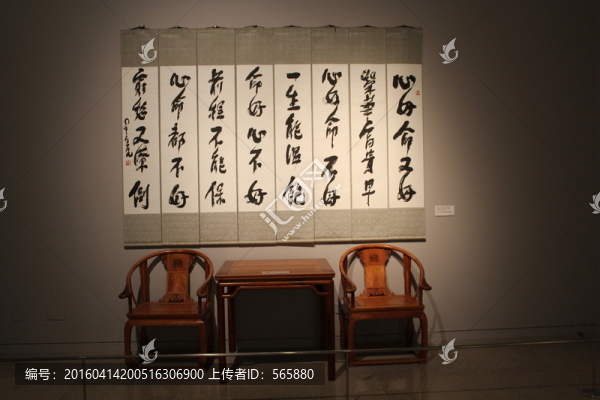 心好命又好
荣华富贵早
心好命不好
一生能温饱
命好心不好
前程不能保
心命都不好
穷愁又潦倒
编号：20160414200516306900 上传者ID：565880